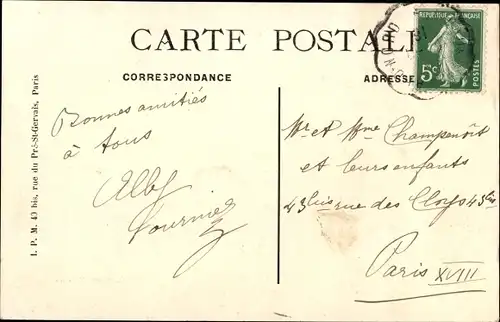 CARTE POSTALE
CORRESPONDANCE
ADRESSE
REPUBLIQUE FRANÇAISE
5c
POSTES
NORD
I. P. M. 43 bis, rue du Pré-St-Gervais, Paris
Bonnes amitiés
à tous
Alb
Fournier
Mr et Mme Champenoit
et leurs enfants
43bis rue des Cloys 43bis
Paris XVIII